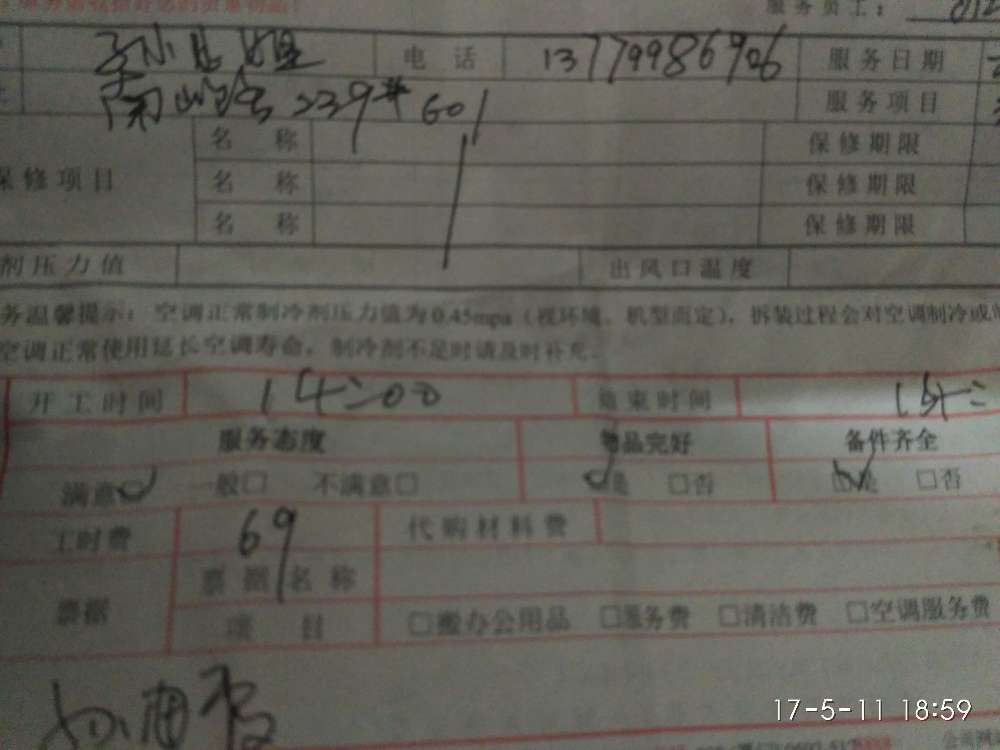 服务员工：
小姐 电话 13779986906 服务日期
南山路239# 601 服务项目
名称 保修期限
保修项目 名称 保修期限
名称 保修期限
剂压力值 出风口温度
务温馨提示：空调正常制冷剂压力值为0.45mpa（视环境、机型而定），拆装过程会对空调制冷或
空调正常使用延长空调寿命，制冷剂不足时请及时补充。
开工时间 14:00 结束时间
服务态度 物品完好 备件齐全
满意□ 一般□ 不满意□ □是 □否 □是 □否
工时费 69 代购材料费
票据名称
票据
项目 □搬办公用品 □服务费 □清洁费 □空调服务费
17-5-11 18:59